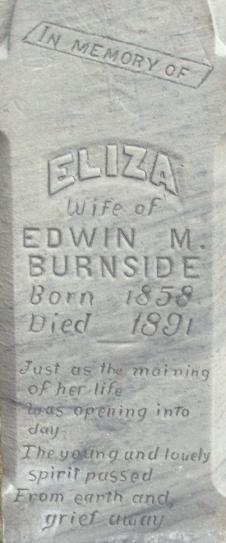 IN MEMORY OF
ELIZA
Wife of
EDWIN M.
BURNSIDE
Born 1858
Died 1891
Just as the morning
of her life
was opening into
day
The young and lovely
spirit passed
From earth and,
grief away